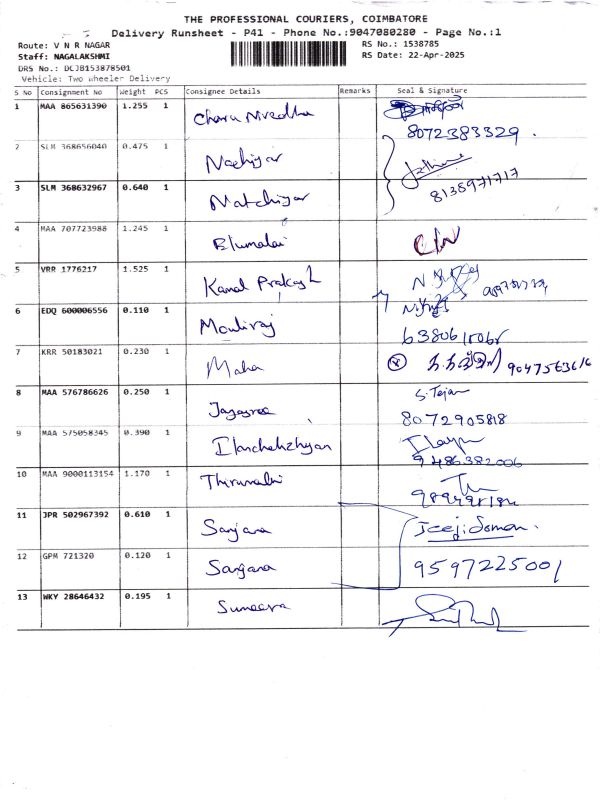 THE PROFESSIONAL COURIERS, COIMBATORE
Delivery Runsheet - P41 - Phone No.:9047080280 - Page No.:1
Route: V N R NAGAR
RS No.: 1538785
Staff: NAGALAKSHMI
RS Date: 22-Apr-2025
DRS No.: DCJB153878501
Vehicle: Two Wheeler Delivery
S No Consignment No Weight PCS Consignee Details Remarks Seal & Signature
1 MAA 865631390 1.255 1 Charu Nivedha
8072383329.
2 SLM 368656040 0.475 1 Nachiyar
3 SLM 368632967 0.640 1 Natchiyar 8138971717
4 MAA 707723988 1.245 1 Elumalai
5 VRR 1776217 1.525 1 Kamal Prakash
6 EDQ 600006556 0.110 1 Mouliraj
7 KRR 50183021 0.230 1 Maha
8 MAA 576786626 0.250 1 Jayasree S. Tejas
8072905818
9 MAA 575058345 0.390 1 Ilanchehzhiyan
9486382006
10 MAA 9000113154 1.170 1 Thirumalai
11 JPR 502967392 0.610 1 Sanjana
12 GPM 721320 0.120 1 Sanjana 9597225001
13 WKY 28646432 0.195 1 Sumeera